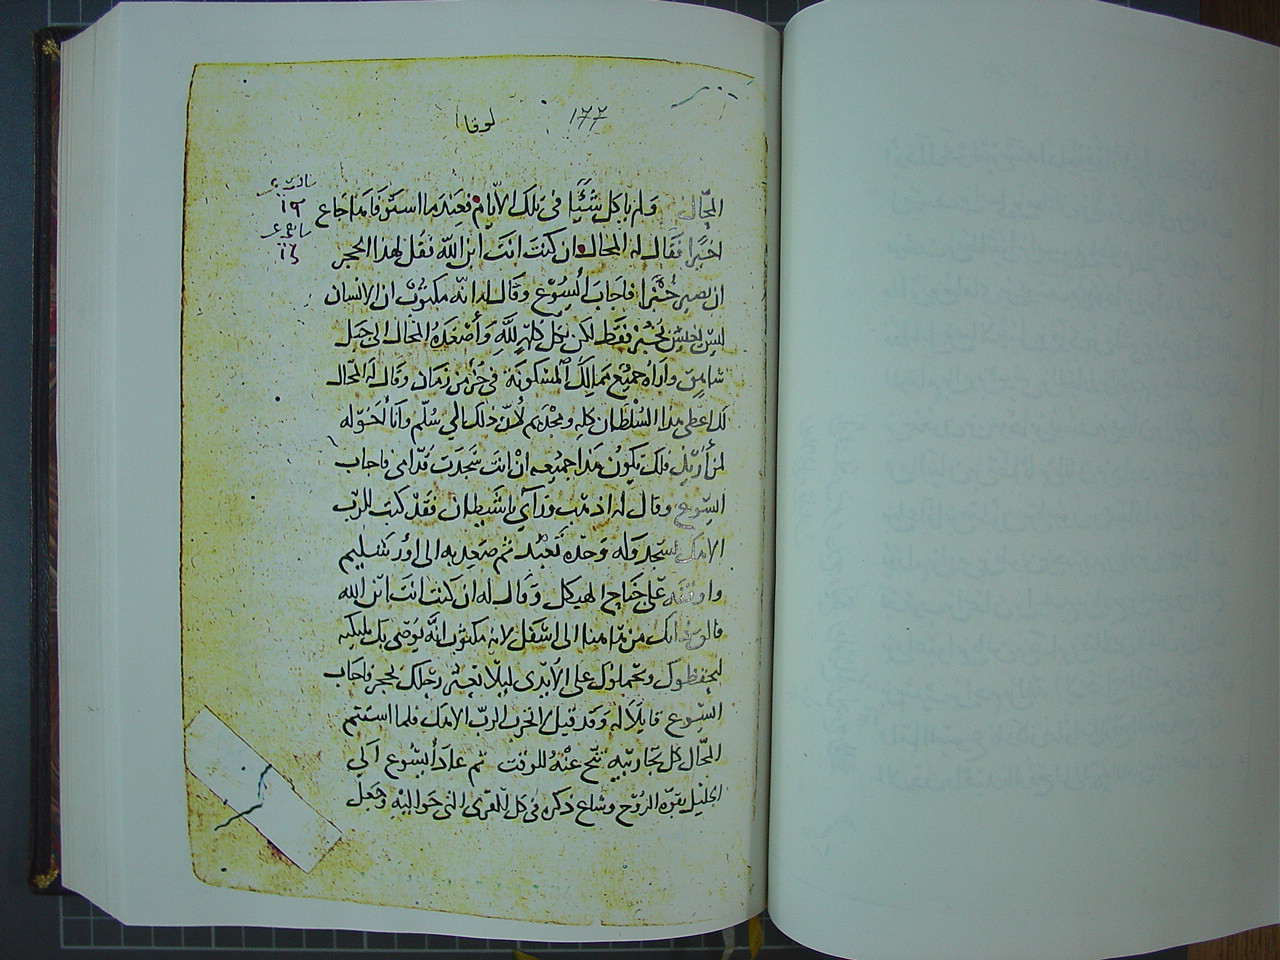 لوقا ١٢٢
المحّال ولم ياكل شيًّا في تلك الايام فعندما استوفا مدا جاع
اخيرًا فقال له المحال ان كنت انت ابن اللّه فقل لهذا الحجر
ان يصير خبزًا فاجاب ايسوع وقال له انه مكتوبٌ ان الانسان
ليس يعيش بخبز فقط لكن بكل كلمة للَّهِ وأصعده المحال الى جبل
شامخ وأراه جميع ممالك المسكونة في جز من زمان وقال له المحّال
لك اعطي هذا السُلْطان كله ومجدهم لأن ذلك الي سُلّم وأنا أخوّله
لمن أريد فلك يكون هذا جميعه انْ انت سجدت قدّامي فاجاب
ايسوع وقال له اذهب ورآي يا شيطان فقد كتب للرب
الاهك تسجد وله وحده تعبد ثم صعد به الى اورشليم
واوقفه على جناح الهيكل وقال له ان كنت انت ابن الله
فالق ذاتك من هاهنا الى اسفل لانه مكتوب انَّه يُوصي بك مليكيه
ليحفظوك وتحملوك على الأيدى ليلّا تعثر رجلك بحجر فاجاب
ايسوع قايلًا له وقد قيل لا تجرب الرب الاهك فلما استتم
المحّال كل تجاريبه تنح عنْهُ للوقت ثم عاد أيسُوع الي
الجليل بقوّه الرُوح وشاع ذكره في كل القرى التي حواليْهِ وجعل